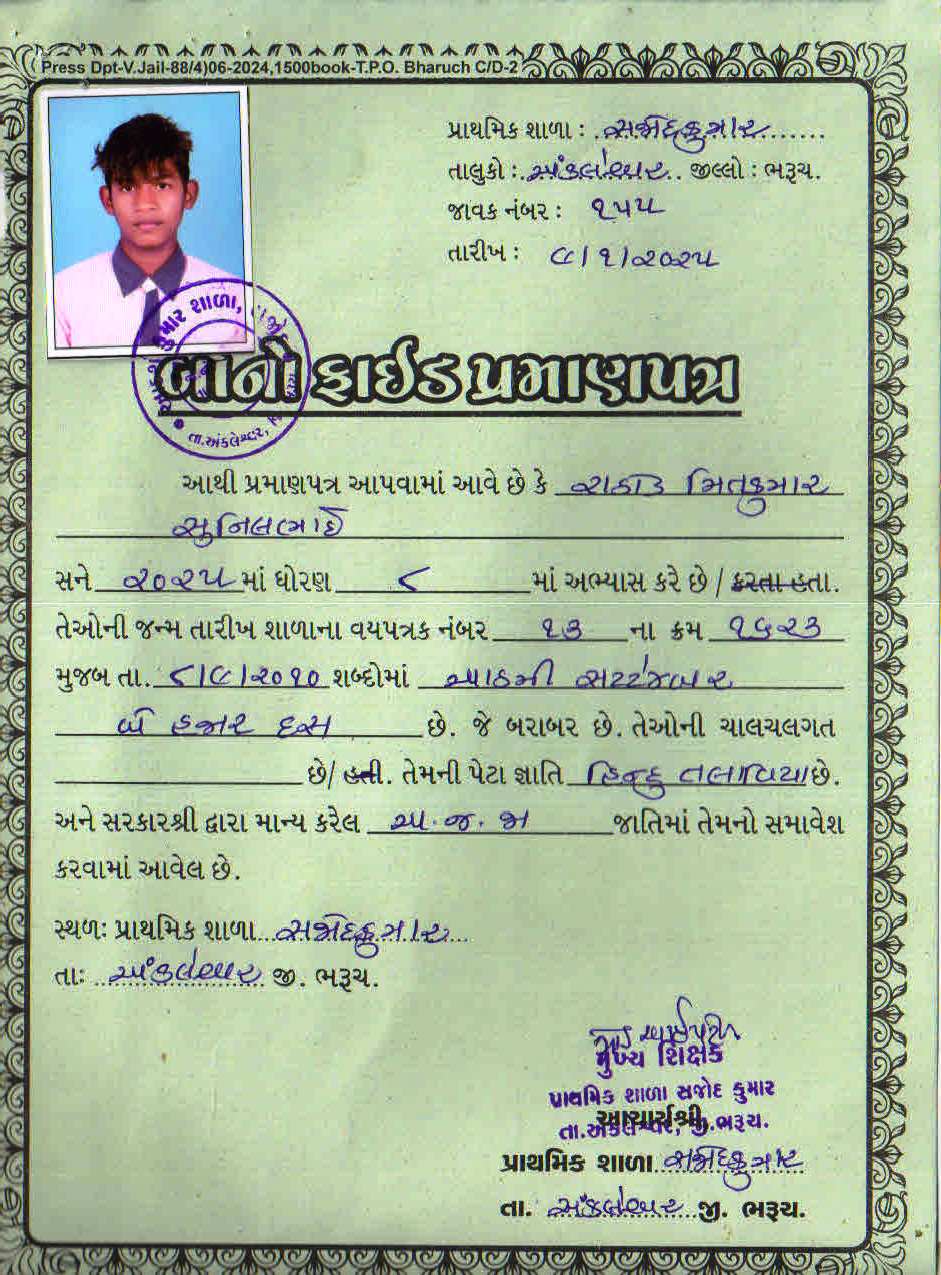 Press Dpt-V.Jail-88/4)06-2024,1500book-T.P.O. Bharuch C/D-2
પ્રાથમિક શાળા : સજોદકુમાર
તાલુકો : અંકલેશ્વર જીલ્લો : ભરૂચ.
જાવક નંબર : ૧૫૫
તારીખ : ૯/૧/૨૦૨૫
બોનો ફાઈડ પ્રમાણપત્ર
કુમાર શાળા, સજોદ
તા.અંકલેશ્વર,
આથી પ્રમાણપત્ર આપવામાં આવે છે કે રાઠોડ મિતકુમાર
સુનિલભાઈ
સને ૨૦૨૫ માં ધોરણ ૮ માં અભ્યાસ કરે છે / કરતા હતા.
તેઓની જન્મ તારીખ શાળાના વયપત્રક નંબર ૧૩ ના ક્રમ ૧૬૨૩
મુજબ તા. ૮/૯/૨૦૧૦ શબ્દોમાં આઠમી સપ્ટેમ્બર
બે હજાર દસ છે. જે બરાબર છે. તેઓની ચાલચલગત
છે/ હતી. તેમની પેટા જ્ઞાતિ હિન્દુ તલાવિયા છે.
અને સરકારશ્રી દ્વારા માન્ય કરેલ અ.જ.જા જાતિમાં તેમનો સમાવેશ
કરવામાં આવેલ છે.
સ્થળ: પ્રાથમિક શાળા સજોદકુમાર
તા: અંકલેશ્વર જી. ભરૂચ.
મુખ્ય શિક્ષક
પ્રાથમિક શાળા સજોદ કુમાર
આચાર્યશ્રી
તા.અંકલેશ્વર, જી.ભરૂચ.
પ્રાથમિક શાળા સજોદકુમાર
તા. અંકલેશ્વર જી. ભરૂચ.